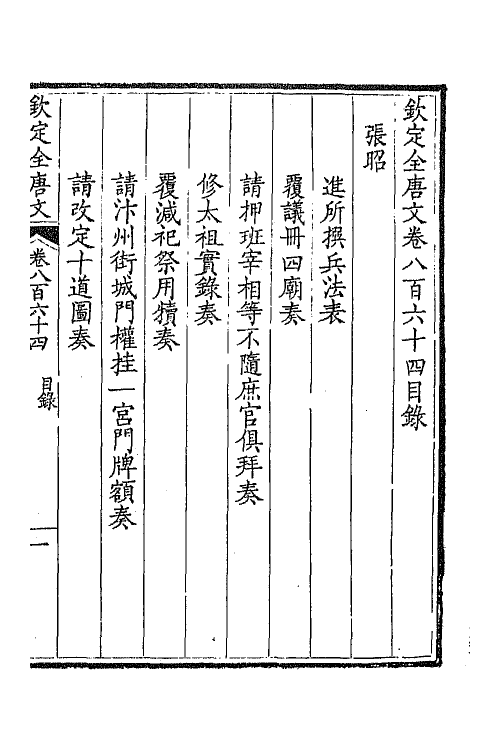 欽定全唐文卷八百六十四目錄
張昭
進所撰兵法表
覆議冊四廟奏
請押班宰相等不隨庶官俱拜奏
修太祖實錄奏
覆減祀祭用犢奏
請汴州街城門權挂一宮門牌額奏
請改定十道圖奏
欽定全唐文 卷八百六十四 目錄 一